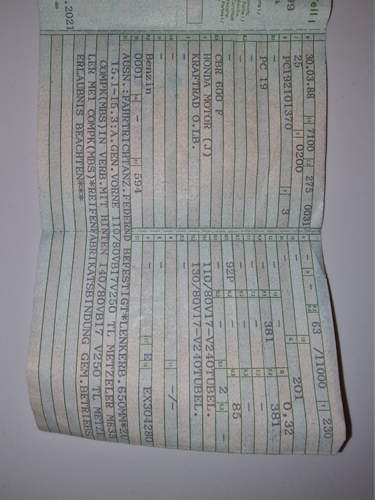 Teil I
30.03.88 7100 272 0031
25 0200
PC192101370 3
PC 19
CBR 600 F
HONDA MOTOR (J)
KRAFTRAD O.LB.
Benzin
0001 - - 594
- 63 /11000 230
- - 201
- 0.32
- 381 381
- - 85
92P - 2
110/80V17-V240TUBEL.
130/80V17-V240TUBEL.
- -/-
- E EX304280
AUSN.:FAHRTRICHTANZ.FEDERND BEFESTIGT*LENKERB.650MM*ZU
15.1-15.3:A.GEN.VORNE 110/80VB17V250 TL METZELER ME33
COMPK(MBS)IN VERB.MIT HINTEN 140/80VB17 V250 TL METZE
LER ME1 COMPK(MBS)*REIFENFABRIKATSBINDUNG GEM.BETRIEBS
ERLAUBNIS BEACHTEN***
.2021